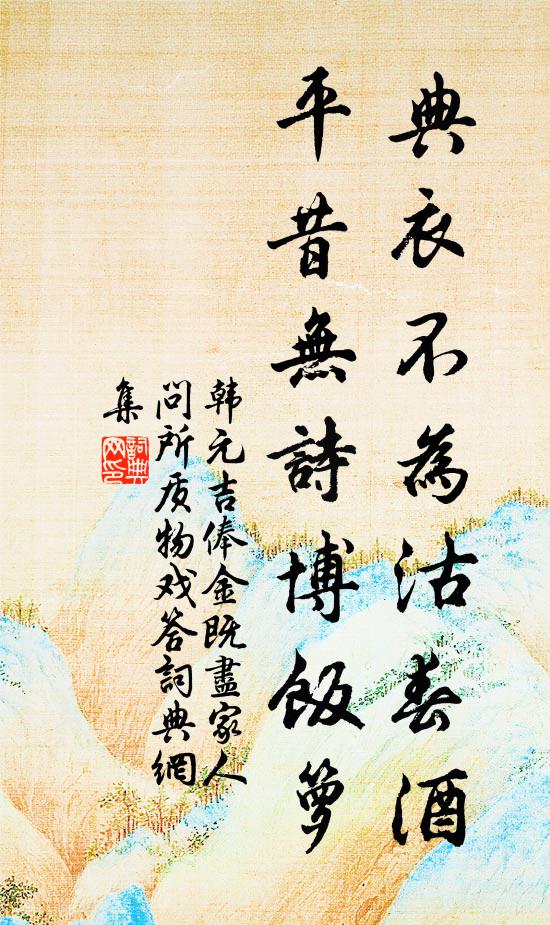 典衣不為沽春酒
平昔無詩博飯籮
韩元吉俸金既盡家人
问所质物戏答詞典網
集
詞典
网印